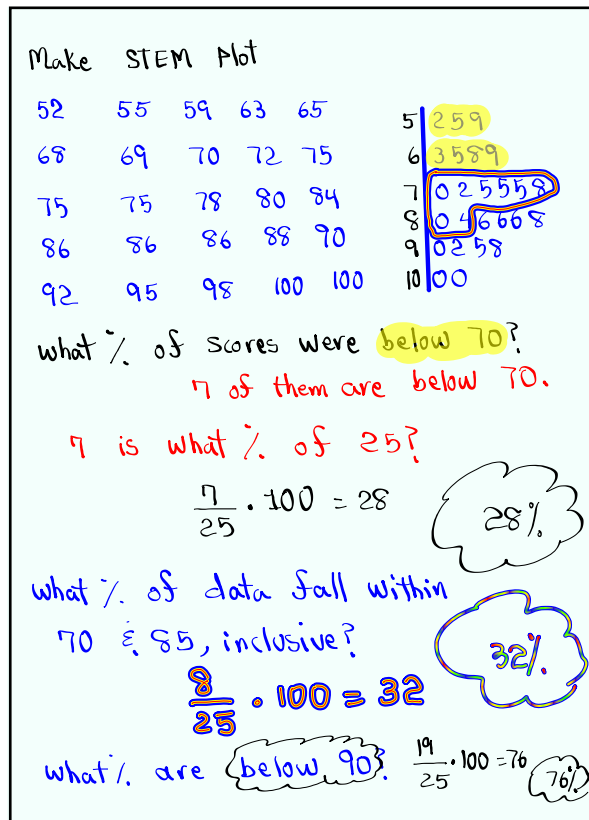 Make STEM Plot
52 55 59 63 65
68 69 70 72 75
75 75 78 80 84
86 86 86 88 90
92 95 98 100 100
5 259
6 3589
7 025558
8 046668
9 0258
10 00
what % of scores were below 70?
7 of them are below 70.
7 is what % of 25?
7/25 · 100 = 28
28%
what % of data fall within
70 & 85, inclusive?
32%
8/25 · 100 = 32
what % are below 90? 19/25 · 100 = 76
76%